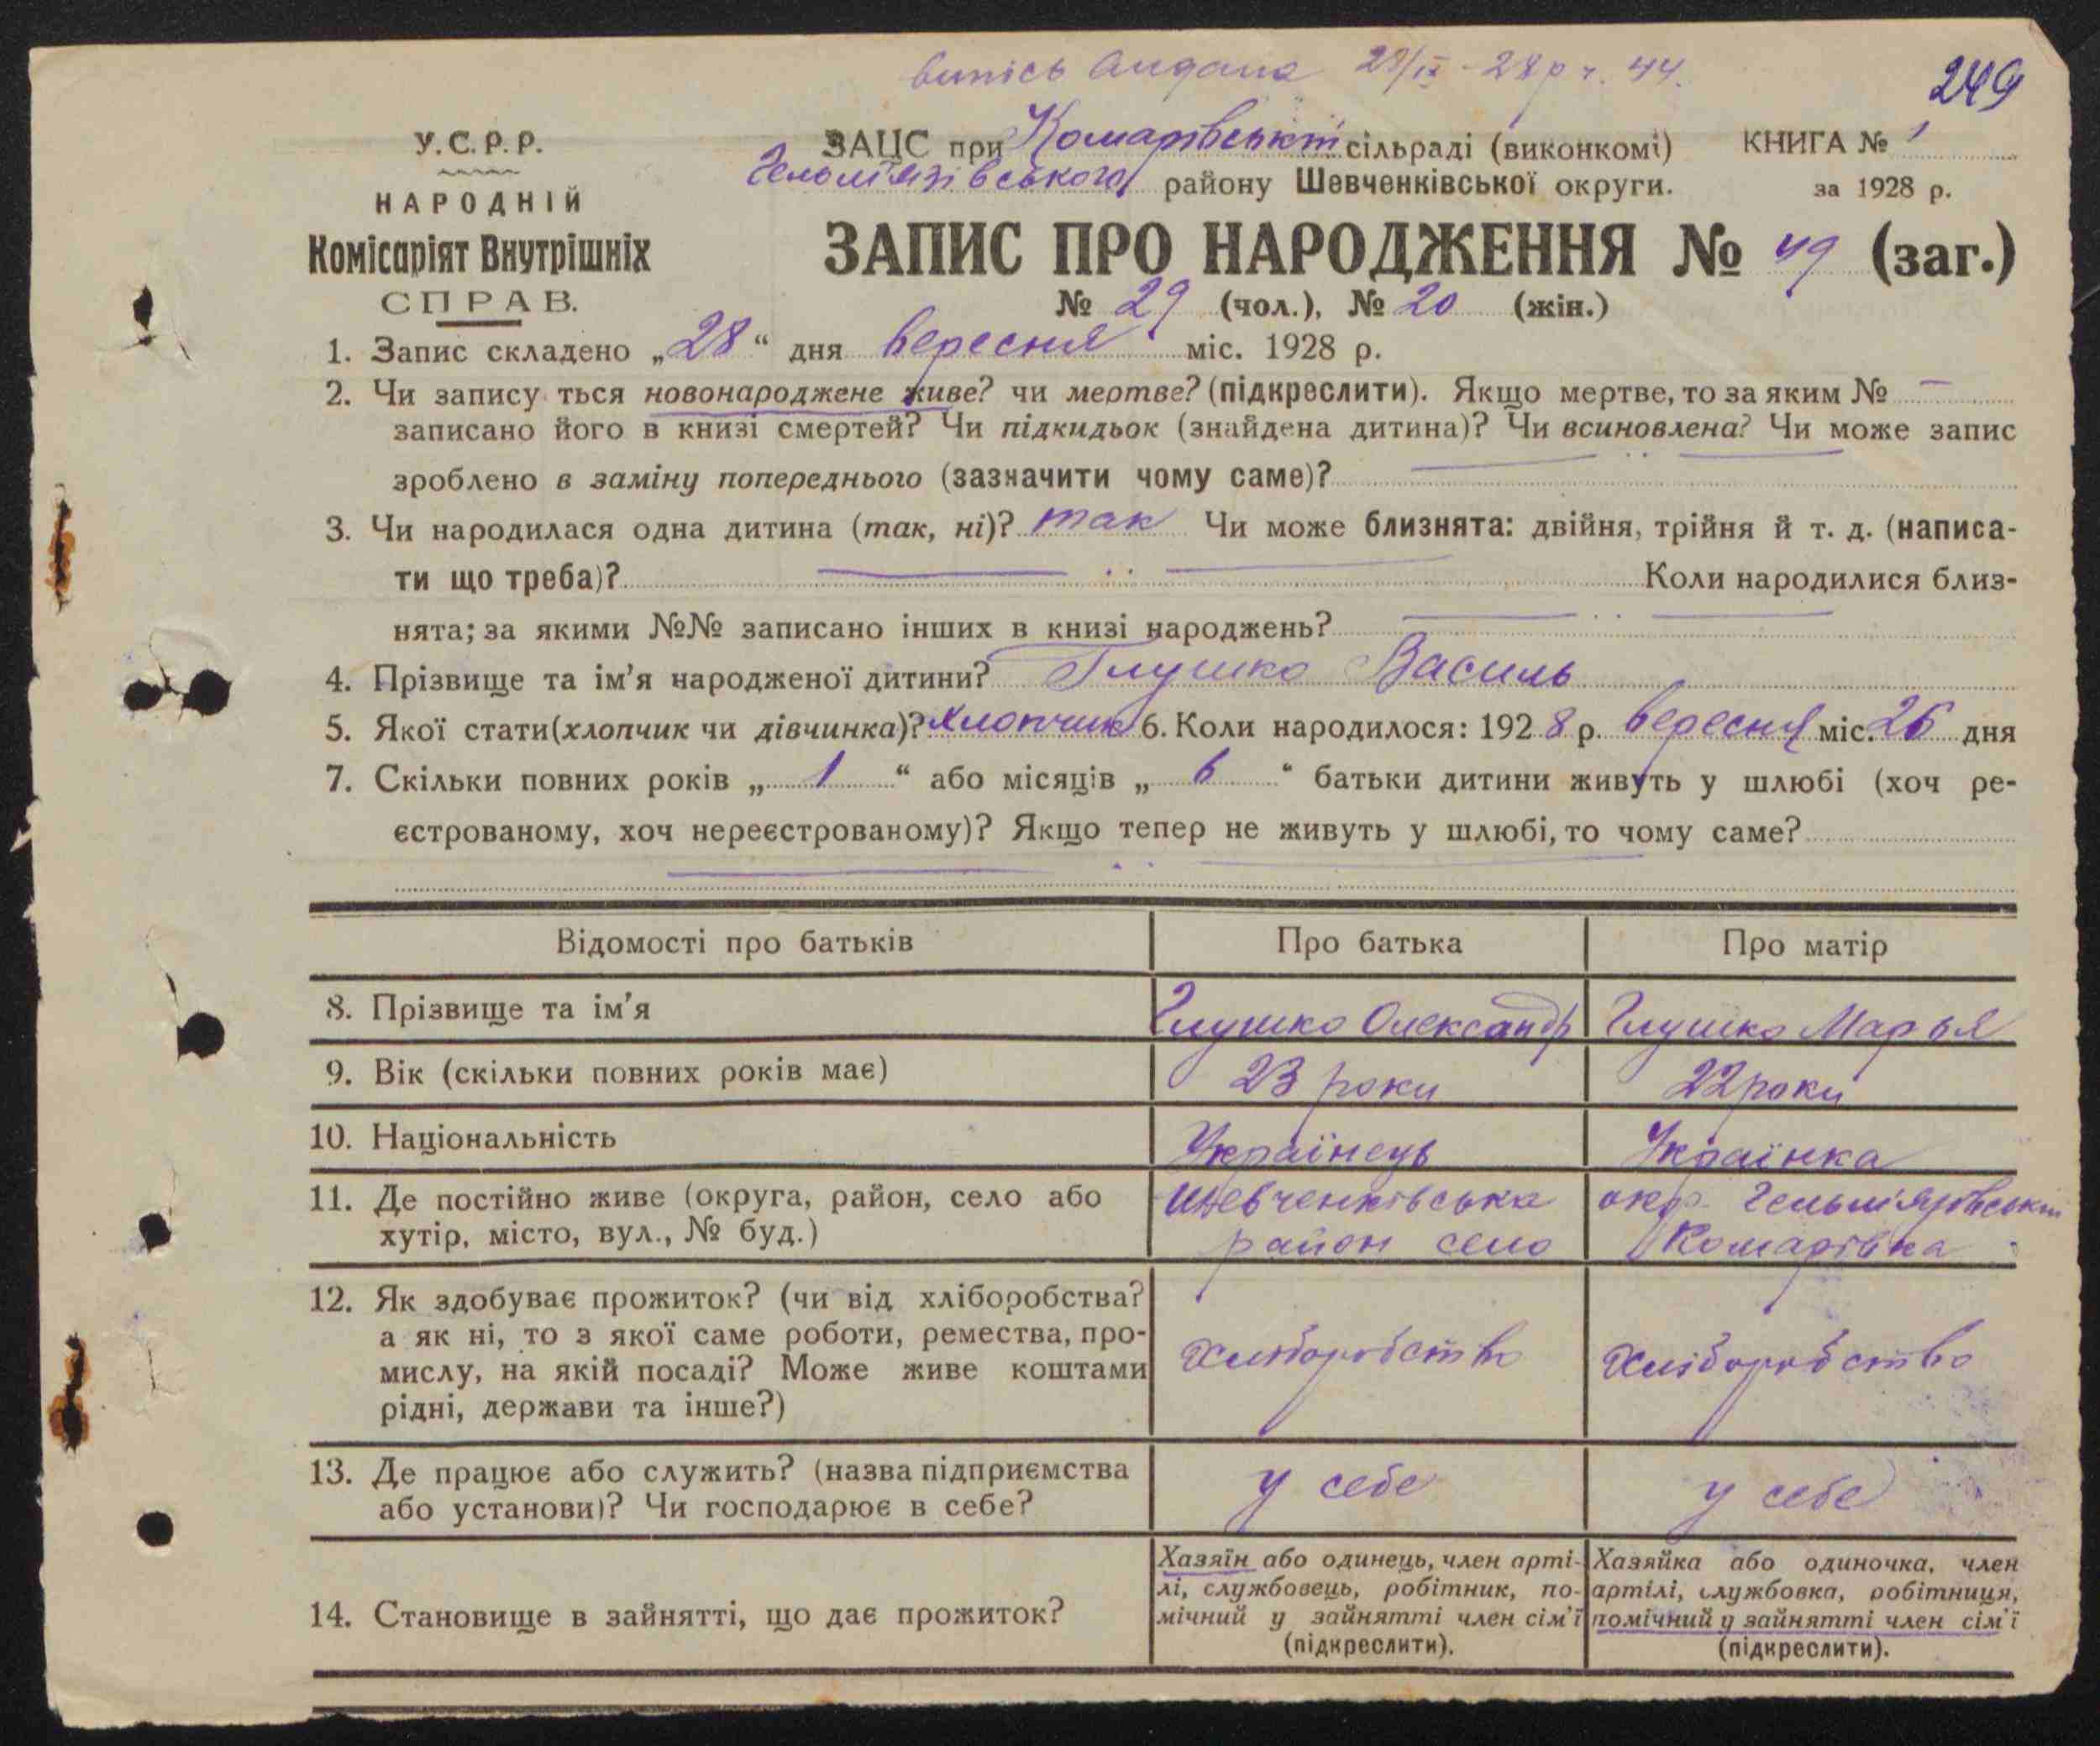 випісь видана 28/ІХ - 28 р. ч. 44.
249
У.С.Р.Р.
НАРОДНІЙ
Комісаріят Внутрішніх
СПРАВ.
ЗАЦС при Комарівській сільраді (виконкомі) КНИГА № 1
Гельмязівського району Шевченківської округи. за 1928 р.
ЗАПИС ПРО НАРОДЖЕННЯ № 49 (заг.)
№ 29 (чол.), № 20 (жін.)
1. Запис складено „28“ дня вересня міс. 1928 р.
2. Чи запису ться новонароджене живе? чи мертве? (підкреслити). Якщо мертве, то за яким № —
записано його в книзі смертей? Чи підкидьок (знайдена дитина)? Чи всиновлена? Чи може запис
зроблено в заміну попереднього (зазначити чому саме)?
3. Чи народилася одна дитина (так, ні)? так Чи може близнята: двійня, трійня й т. д. (написа-
ти що треба)? Коли народилися близ-
нята; за якими №№ записано інших в книзі народжень?
4. Прізвище та ім’я народженої дитини? Глушко Василь
5. Якої стати (хлопчик чи дівчинка)? Хлопчик 6. Коли народилося: 1928 р. вересня міс. 26 дня
7. Скільки повних років „ 1 “ або місяців „ 6 “ батьки дитини живуть у шлюбі (хоч ре-
єстрованому, хоч нереєстрованому)? Якщо тепер не живуть у шлюбі, то чому саме?
Відомості про батьків Про батька Про матір
8. Прізвище та ім’я Глушко Олександр Глушко Марья
9. Вік (скільки повних років має) 23 роки 22 роки
10. Національність Українець Українка
11. Де постійно живе (округа, район, село або Шевченківська окр. Гельмязівський
хутір, місто, вул., № буд.) район село Комарівка
12. Як здобуває прожиток? (чи від хліборобства?
а як ні, то з якої саме роботи, ремества, про-
мислу, на якій посаді? Може живе коштами Хліборобство Хліборобство
рідні, держави та інше?)
13. Де працює або служить? (назва підприємства у себе у себе
або установи)? Чи господарює в себе?
14. Становище в зайнятті, що дає прожиток?
Хазяїн або одинець, член арті-
лі, службовець, робітник, по-
мічний у зайнятті член сім’ї
(підкреслити).
Хазяйка або одиночка, член
артілі, службовка, робітниця,
помічний у зайнятті член сім’ї
(підкреслити).